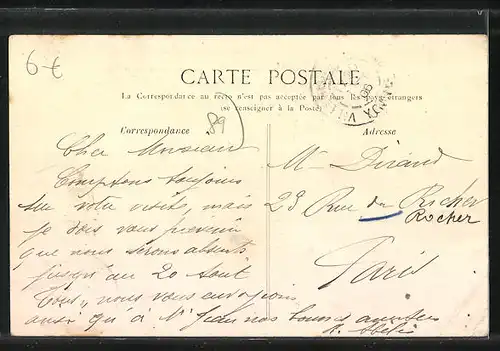 6 €
CARTE POSTALE
La Correspondance au recto n'est pas acceptée par tous les pays étrangers
(se renseigner à la Poste)
89
Correspondance
Adresse
Cher Monsieur
Comptons toujours
sur votre visite, mais
je dois vous prévenir
que nous serons absents
jusqu'au 20 août
Tous, nous vous envoyons
ainsi qu'à Mr Jean nos bonnes amitiés
Mr Durand
23 Rue du Rocher
Rocher
Paris